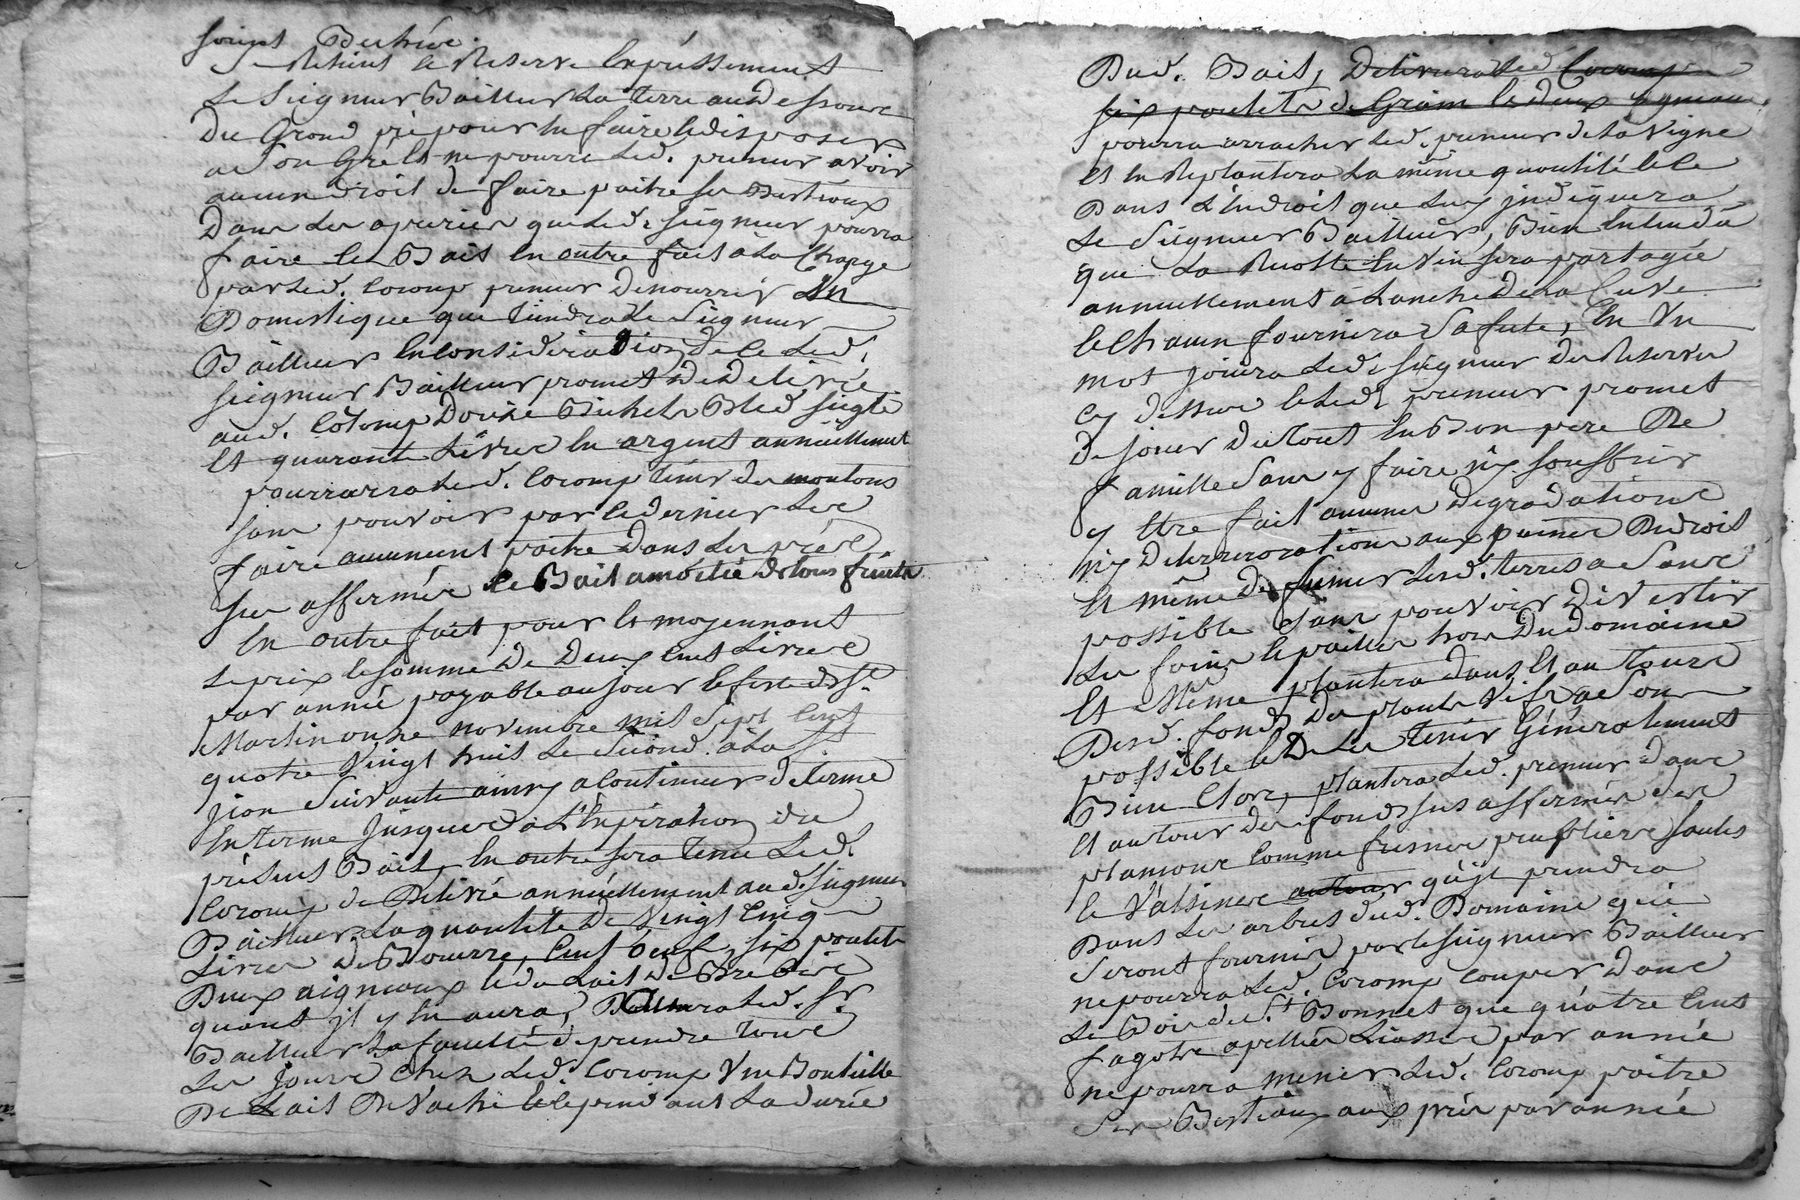 se Retient et Reserve Expréssement
Le Seigneur Bailleur La terre au Dessous
Du Grand pré pour En faire Et disposer
a Son Gré Et ne pourra Led. preneur avoir
aucun droit de faire paitre ses Bestiaux
Dans Les que Led. seigneur pourra
faire le Bail En outre fait à La Charge
par Led. Coromp preneur De nourrir Un
Domestique que tiendra Le Seigneur
Bailleur En Consideration De Ce Led.
seigneur Bailleur promet De Delivré
aud. Coromp Douze Bichets Bled seigle
Et quarante Livres En argent annuellement
pourra Led. Coromp tenir des moutons
sans pouvoir par Ce dernier Les
faire aucunement paitre Dans Les prés
sus affermés Le Bail a moitié De tous fruits
En outre fait pour Et moyennant
Le prix Et somme De Deux Cent Livres
par année payable au jour Et feste de St.
Martin onze novembre mil Sept Cent
quatre Vingt huit Le Second à La St.
Jion Suivante ainsy a Continuer De terme
En terme Jusques à L'Expiration du
présent Bail, En outre sera tenu Led.
Coromp de Delivré annuellement aud. seigneur
Bailleur La quantité De Vingt Cinq
Livres De Beurre, Cent Oeufs, six poulets
Deux aigneaux Et du Lait De Brebière
quant jl y En aura, Led. Sr.
Bailleur La faculté de prendre tous
Les Jours Chez Led. Coromp Une Bouteille
De Lait De Vache Et Ce pendant La durée
Dud. Bail, Delivrera Led. Coromp
six poulets de Grain Et deux aigneaux
pourra arracher Led. preneur de La Vigne
Et En Replantera La même quantité Et Ce
Dans L'Endroit que Luy jndiquera
Le Seigneur Bailleur, Bien Entendu
que La Recolte En Vin sera partagée
annuellement à Lanche De La Cuve
Et Chacun fournira Sa fute, En Un
mot jouira Led. seigneur Des Reserves
Cy dessus Et Led. preneur promet
De jouir Du tout En Bon pere De
famille Sans y faire ny souffrir
y Etre fait aucunes Degradations
ny Deterriorations aux peines De droit
Et même De fumer Lesd. terres a Son
possible Sans pouvoir Divertir
Les foins Et pailles hors Du domaine
Et Même plantera Dans Et au tours
Desd. fonds Des plants Vifs a Son
possible Et De Les tenir Géneralement
Bien Clos, plantera Led. preneur Dans
Et autour des fonds sus affermés des
plansons Comme fresnes peupliers saules
Et Valsines autour qu'jl prendra
Dans Les arbres dud. Domaine qui
Seront fournis par Le seigneur Bailleur
ne pourra Led. Coromp Couper Dans
Le Bois du St. Bonnet que quatre Cent
fagots apellés Liasses par année
ne pourra mener Led. Coromp paitre
Ses Bestiaux aux prés par année